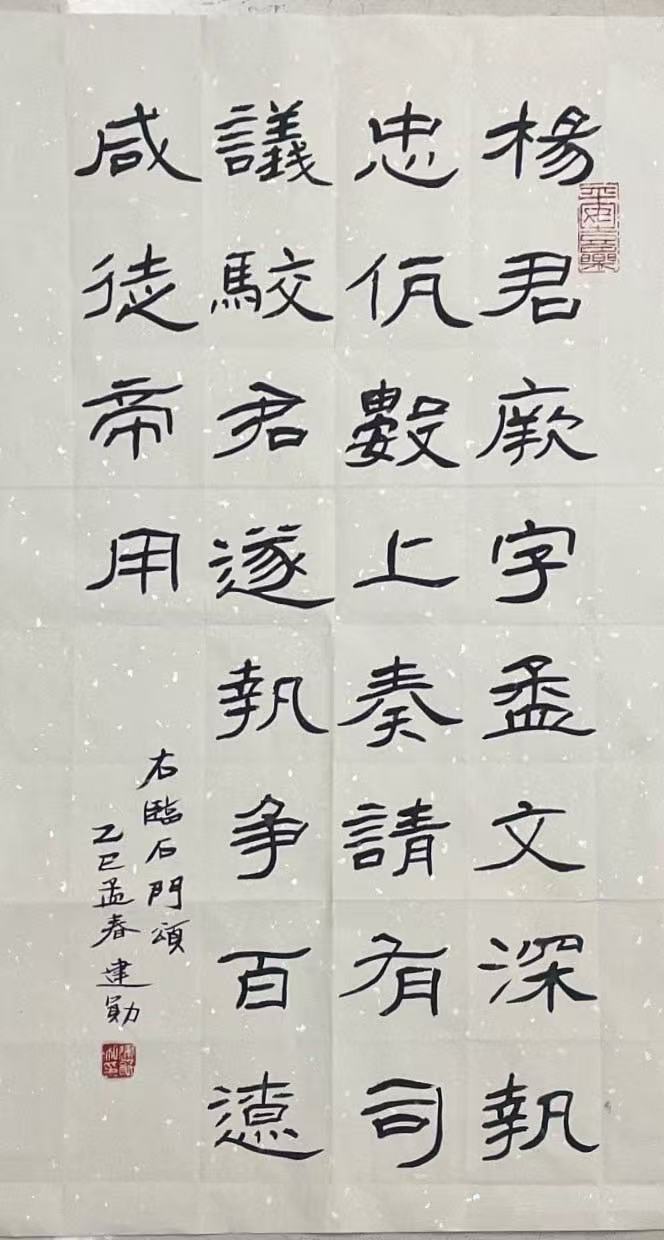 楊君厥字孟文深執
忠伉數上奏請有司
議駮君遂執争百遼
咸從帝用
右臨石門頌
乙巳孟春 建勛
平安喜樂